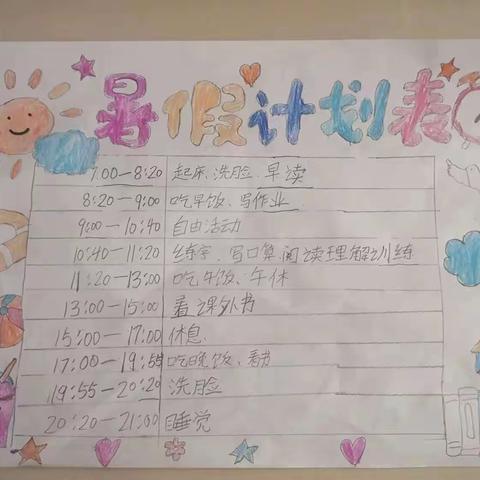 暑假计划表
7:00—8:20 起床、洗脸、早读
8:20—9:00 吃早饭、写作业
9:00—10:40 自由活动
10:40—11:20 练字、写口算阅读理解训练
11:20—13:00 吃午饭、午休
13:00—15:00 看课外书
15:00—17:00 休息
17:00—19:55 吃晚饭、看书
19:55—20:20 洗脸
20:20—21:00 睡觉